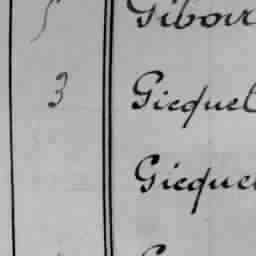 Giboir
3 Gicquel
Gicquel